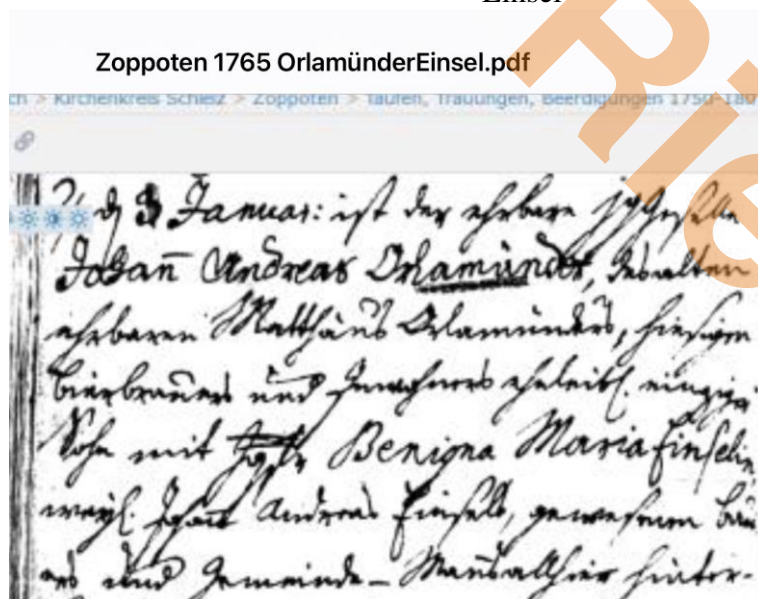 Einsel
Zoppoten 1765 OrlamünderEinsel.pdf
ch > Kirchenkreis Schleiz > Zoppoten > Taufen, Trauungen, Beerdigungen 1750-180
d 3 Januar: ist der ehrbare jgGeselle
Johañ Andreas Orlamünder, des alten
ehrbaren Matthäus Orlamünders, hiesigen
Bierbrauers und Inwohners eheleibl. einziger
Sohn mit Jgfr Benigna Maria Einselin,
weyl. Johañ Andreas Einsels, gewesenen Bau
ers und Gemeinde-Manns allhier hinter-
Rie